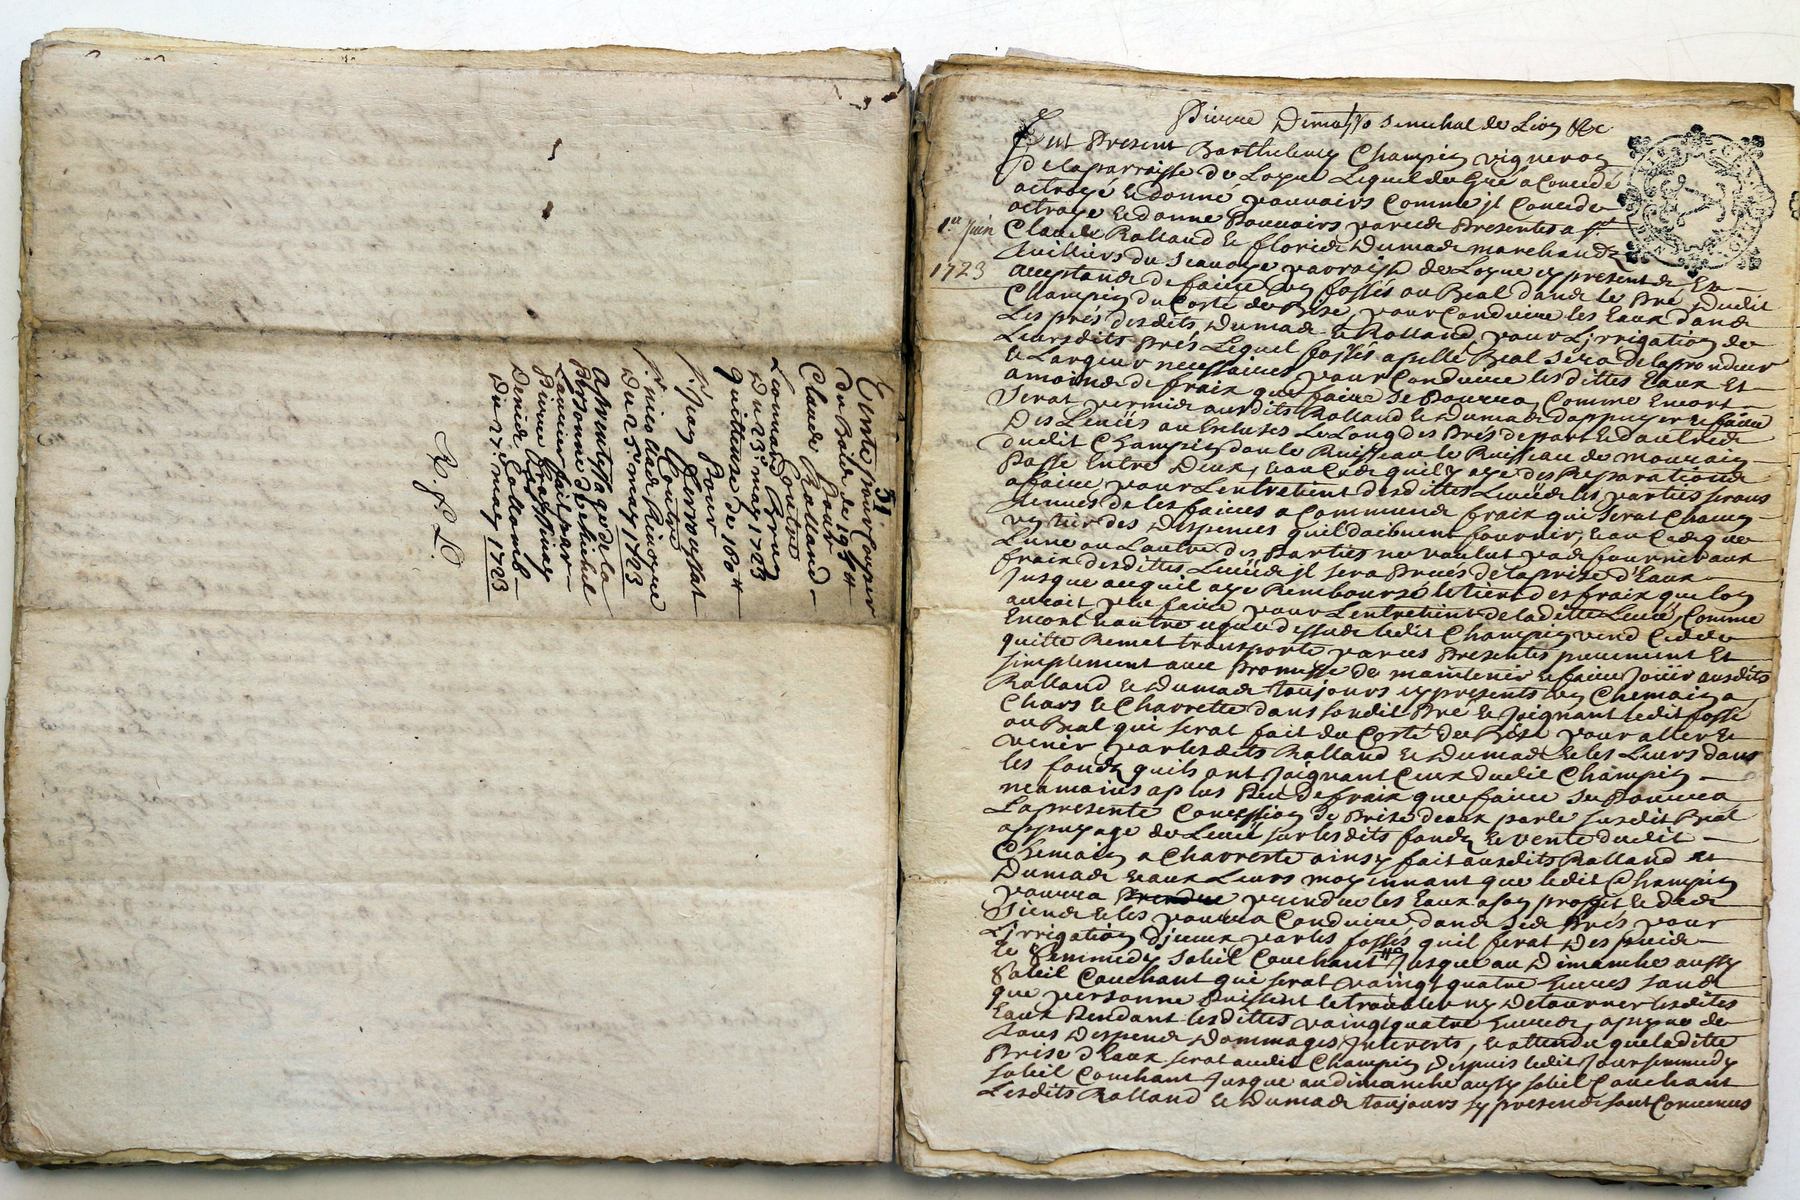 31
Vente pour Couper
du Bois de 195 tt
pour
Claude Rolland
Contre
Leonard Brun
Du 23e may 1723
Quittence de 180 tt
Pour
Sr. Jean Perroussat
Contre
Sr. Nicolas Rivoyre
Du 25e may 1723
Aprentissage de la
Personne de Michel
Du 27e may 1723
Pierre Dumas Senechal de Lion &c
Fut Present Barthelemy Champin vigneron
De la parroisse de Loyre Lequel de Gré a Concedé
octroyé et donné pouvoirs Comme jl Concede
octroye et donne Pouvoirs par ces Presentes a sr.
1er Juin
1723
Claude Rolland et Floris Dumas marchands
acceptands de faire un fossés ou Beal dans le Pré Dudit
Champin du Costé de Bise, pour Conduire les Eaux dans
Les prés desdits Dumas et Rolland pour L'jrrigation de
Leursdits Prés Lequel fossés apellé Beal sera de la profondeur
et Largeur necessaires pour Conduire lesdittes Eaux Et
a moins de fraix que faire se Pourra, Comme Encort
Serat permis ausdits Rolland et Dumas d'appuyer et faire
Des Levées ou Ecluses Le Long des Prés de part et d'autre
dudit Champin dont le Ruisseau
Passe Entre Deux, et au Cas quil y aye des Reparations
a faire pour L'entretient desdittes Levées les parties serons
tenues de les faires a Communs fraix qui serat Chacun
un tier des Dispences quil daibvent fournir, et au Cas que
L'une ou L'autre des Parties ne voulut pas fournir aux
fraix desdittes Levées jl sera Privés de la prise d'Eaux
Jusque a ce quil aye Remboursé le tiers des fraix que lon
auroit peu faire pour L'entretient de la ditte Levée, Comme
Encort Et outre ce que dessus ledit Champin vend Cedde
quitte Remet transporte par ces Presentes purement Et
simplement avec Promesse de maintenir et faire Joüir ausdits
Rolland et Dumas toujours cy presents un Chemain a
Chars et Charrette dans sondit Pré et Joignant ledit fossé
ou Beal qui serat fait du Costé de Bise pour aller et
venir par lesdits Rolland et Dumas et les Leurs dans
les fonds quils ont Joignant Ceux dudit Champin
neamoins a plus Peu de fraix que faire se Pourra
La presente Concession de Prise deaux par le susdit Beal
appuyage de Levée sur lesdits fonds et vente dudit
Chemain a Charrette ainsy fait ausdits Rolland et
Dumas et aux Leurs moyennant que ledit Champin
pourra prendre les Eaux a son proffit et des
Siens et les pourra Conduire dans Ses Prés pour
L'jrrigation d'jceux par les fossés quil ferat Despuis
le Semmedy Soleil Couchant Jusque au Dimanche aussy
Soleil Couchant qui serat vaingt quatre heures sans
que personne Puissent le troubler ny Detourner lesdites
Eaux Pendant lesdittes vaingt quatre heures, a payne de
tous Despends Dommages Interests, et attendu que la ditte
Prise d'Eaux serat audit Champin Depuis ledit Jour semmedy
soleil Couchant Jusque au dimanche aussy soleil Couchant
Lesdits Rolland et Dumas toujours cy presends sont Convenus